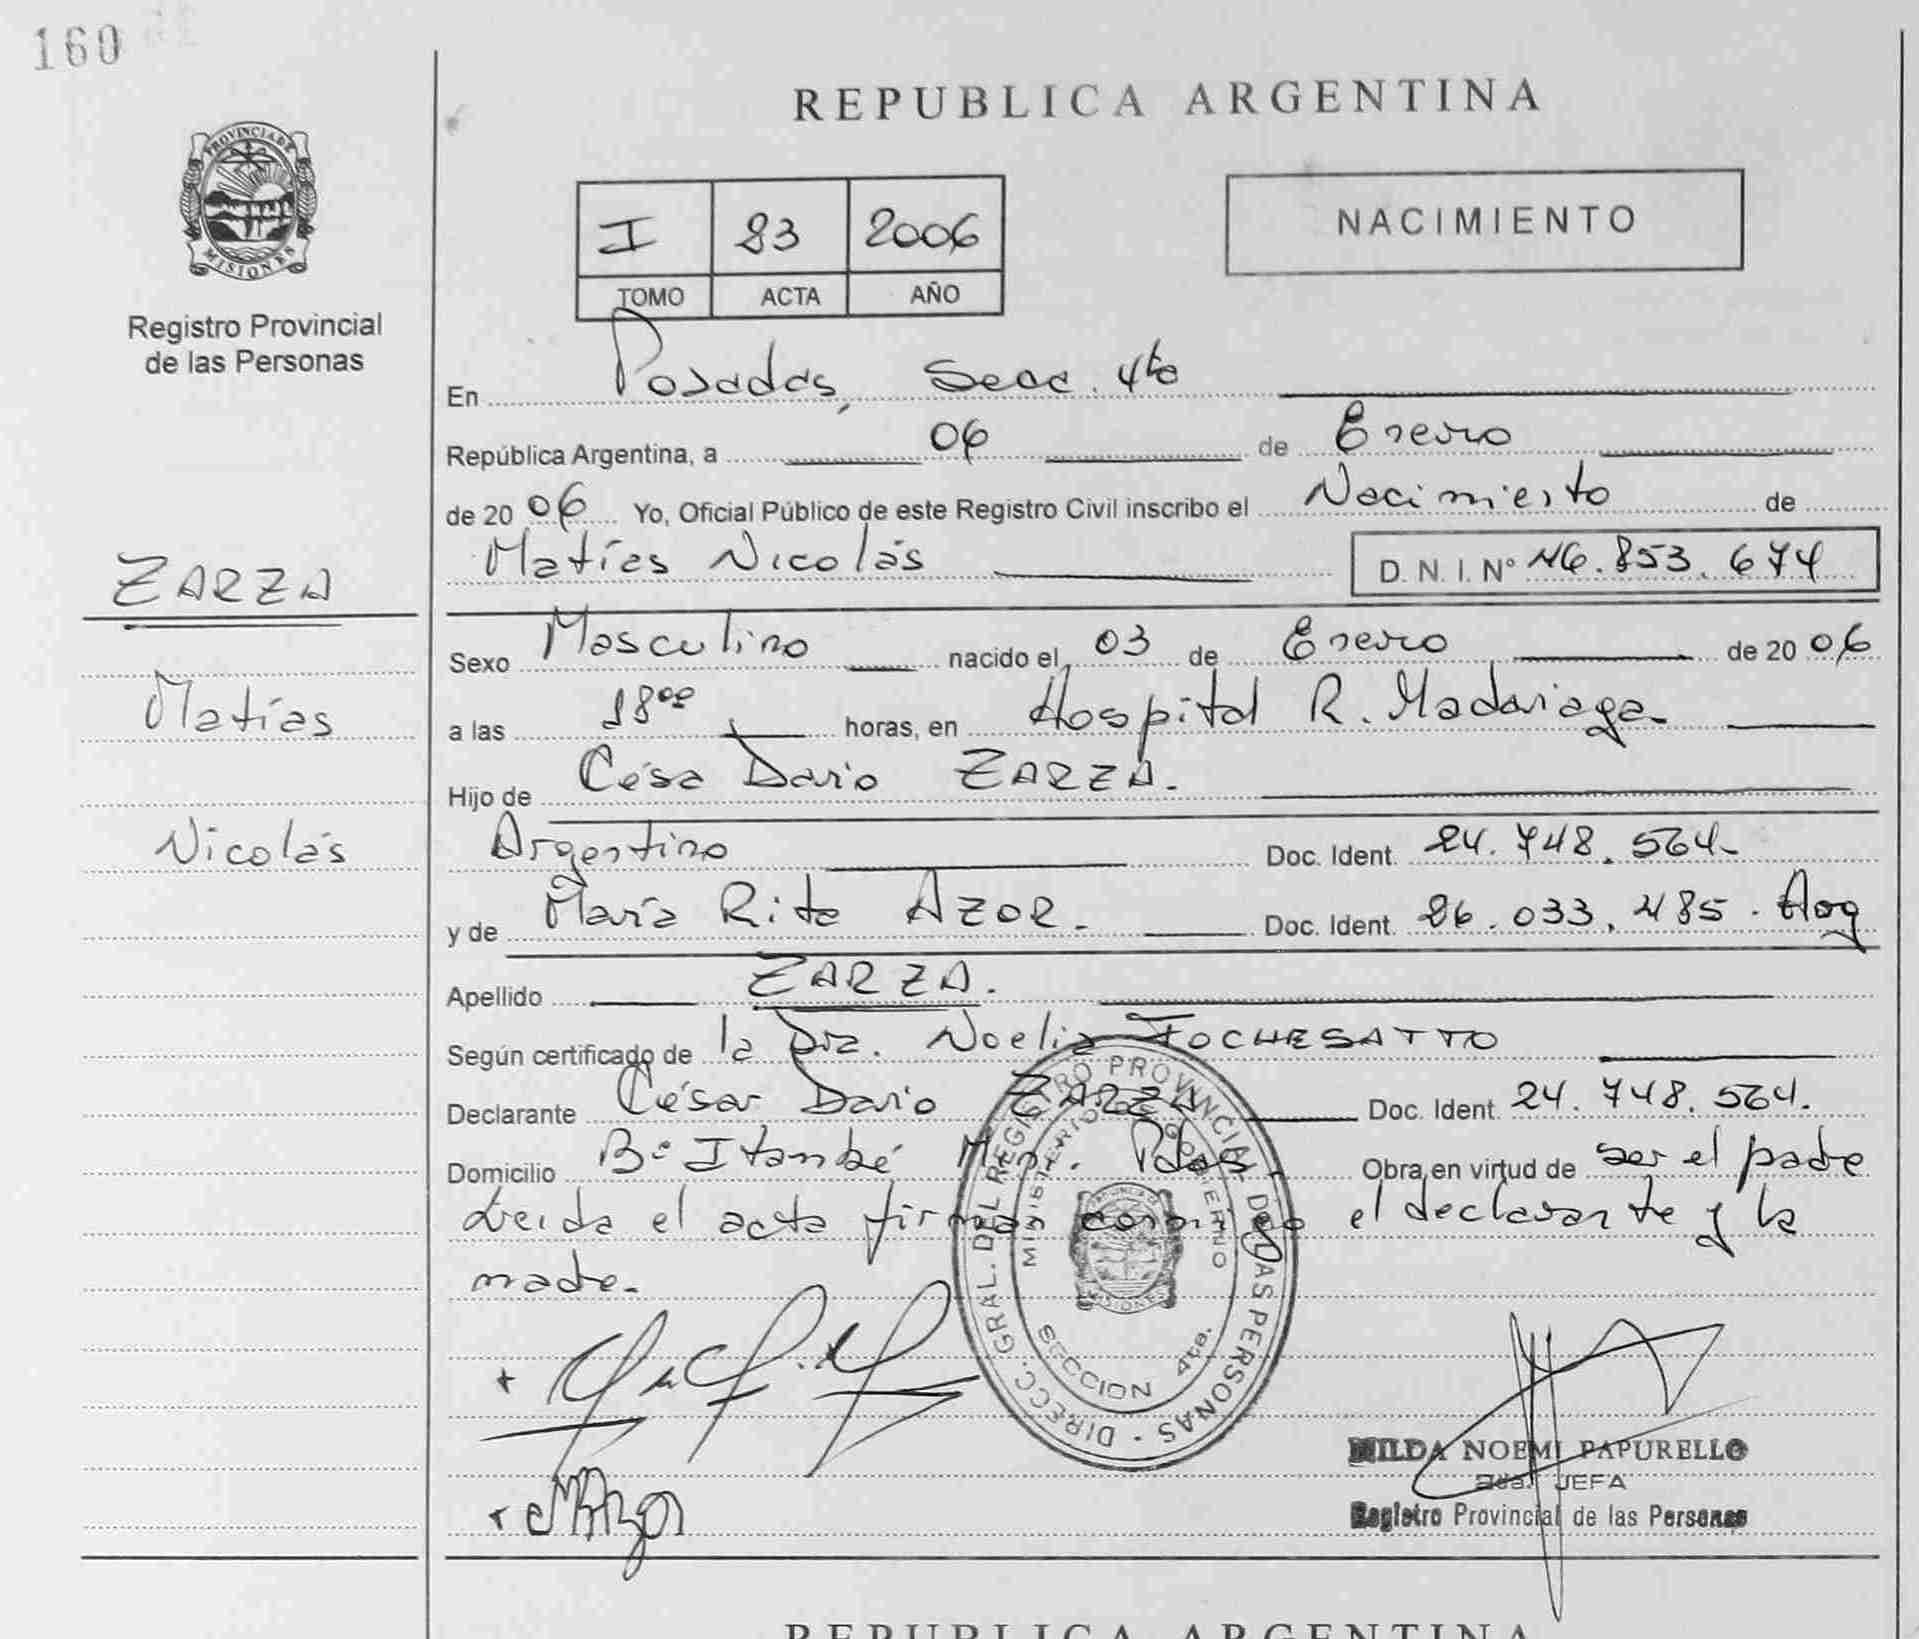 160
REPUBLICA ARGENTINA
PROVINCIA DE
MISIONES
I 23 2006
TOMO ACTA AÑO
NACIMIENTO
Registro Provincial
de las Personas
En Posadas, Secc. 4ta
República Argentina, a 06 de Enero
de 2006 Yo, Oficial Público de este Registro Civil inscribo el Nacimiento de
Matías Nicolás D. N. I. Nº 46.853.674
ZARZA
Matías
Nicolás
Sexo Masculino nacido el 03 de Enero de 2006
a las 18ºº horas, en Hospital R. Madariaga
Hijo de César Dario ZARZA.
Argentino Doc. Ident. 24.748.564.
y de María Rita AZOR. Doc. Ident. 26.033.485. Arg
Apellido ZARZA.
Según certificado de la Dra. Noelia FOCHESATTO
Declarante César Dario ZARZA Doc. Ident. 24.748.564.
Domicilio Bº Itambé Mini. Pdas. Obra en virtud de ser el padre
Leida el acta firman conmigo el declarante y la
madre.
DIRECC. GRAL. DEL REGISTRO PROVINCIAL DE LAS PERSONAS
MINISTERIO DE GOBIERNO
MISIONES
SECCION 4ta.
MILDA NOEMI PAPURELLO
2da. JEFA
Registro Provincial de las Personas
REPUBLICA ARGENTINA